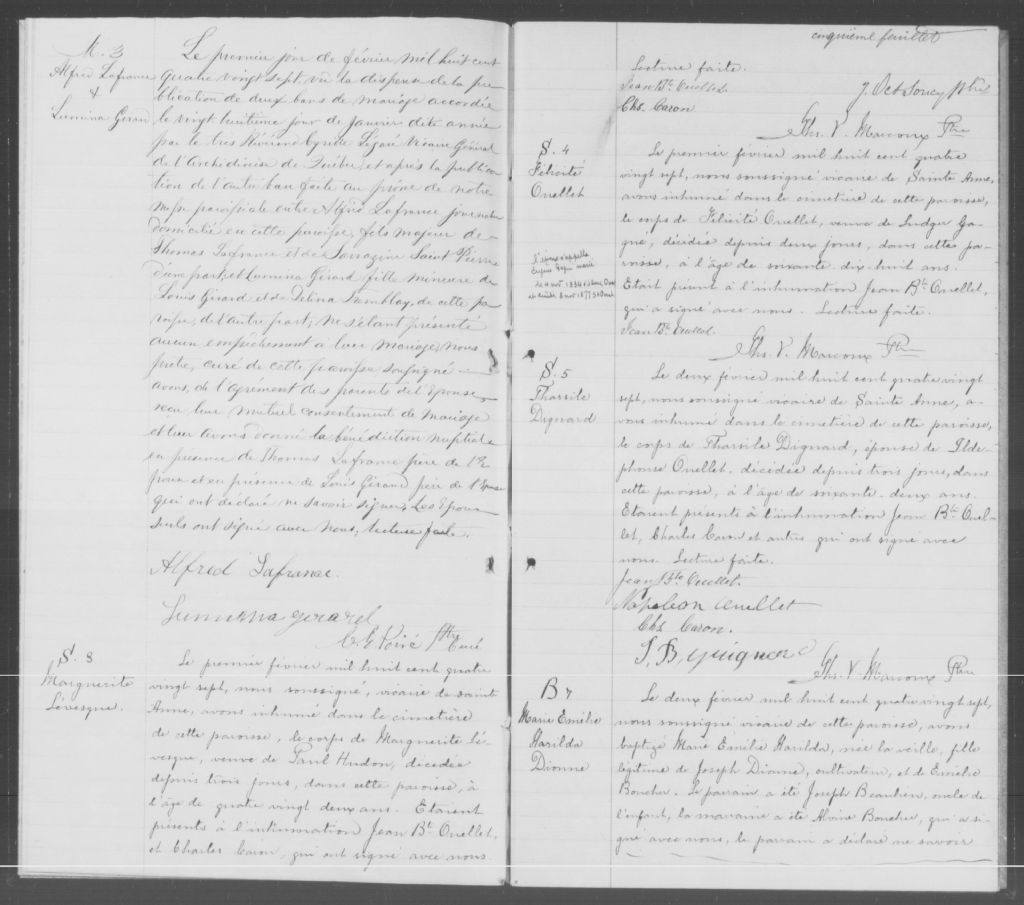 M. 3
Alfred Lafrance
&
Lumina Girard
Le premier jour de février mil huit cent
quatre vingt sept, vu la dispense de la pu-
blication de deux bans de mariage accordée
le vingt huitième jour de janvier dite année
par le très Révérend Cyrille Légaré Vicaire Général
de l'Archidiocèse de Québec, et après la publica-
tion de l'autre ban faite au prône de notre
messe paroissiale entre Alfred Lafrance journalier
domicilié en cette paroisse, fils majeur de
Thomas Lafrance et de Sarrazine Saint Pierre
d'une part, et Lumina Girard fille mineure de
Louis Girard et de Delina Tremblay, de cette pa-
roisse, de l'autre part; ne s'étant présenté
aucun empêchement à leur mariage, nous
prêtre, curé de cette paroisse soussigné
avons, de l'agrément des parents de l'Epouse
reçu leur mutuel consentement de mariage
et leur avons donné la bénédiction nuptiale
en présence de Thomas Lafrance père de l'E-
poux et en présence de Louis Girard père de l'Epouse
qui ont déclaré ne savoir signer. Les Epoux
seuls ont signé avec nous, lecture faite.
Alfred Lafrance.
Luminna girard
C. E. Poiré Ptre Curé
S. 3
Marguerite
Lévesque.
Le premier février mil huit cent quatre
vingt sept, nous soussigné, vicaire de Sainte
Anne, avons inhumé dans le cimetière
de cette paroisse, le corps de Marguerite Lé-
vesque, veuve de Paul Hudon, décédée
depuis trois jours, dans cette paroisse, à
l'âge de quatre vingt deux ans. Etaient
présents à l'inhumation Jean Bt. Ouellet,
et Charles Caron, qui ont signé avec nous.
cinquième feuillet
Lecture faite.
Jean Bte Ouellet.
Chs. Caron
Ths. V. Marcoux Ptre
S. 4
Félicité
Ouellet
Le premier février mil huit cent quatre
vingt sept, nous soussigné vicaire de Sainte Anne,
avons inhumé dans le cimetière de cette paroisse,
le corps de Félicité Ouellet, veuve de Ludger Ga-
gné, décédée depuis deux jours, dans cette pa-
roisse, à l'âge de soixante dix huit ans.
Etait présent à l'inhumation Jean Bt. Ouellet,
qui a signé avec nous. Lecture faite.
Jean Bte Ouellet.
Ths. V. Marcoux Ptre
S. 5
Tharsile
Dignard
Le deux février mil huit cent quatre vingt
sept, nous soussigné vicaire de Sainte Anne, a-
vons inhumé dans le cimetière de cette paroisse,
le corps de Tharsile Dignard, épouse de Ilde-
phonse Ouellet, décédée depuis trois jours, dans
cette paroisse, à l'âge de soixante deux ans.
Etaient présents à l'inhumation Jean Bt. Ouel-
let, Charles Caron et autres qui ont signé avec
nous. Lecture faite.
Jean Bte Ouellet.
Napoleon ouellet
Chs. Caron.
Ths. V. Marcoux Ptre
B 7
Marie Emélie
Harilda
Dionne
Le deux février mil huit cent quatre vingt sept,
nous soussigné vicaire de cette paroisse, avons
baptizé Marie Emélie Harilda, née la veille, fille
légitime de Joseph Dionne, cultivateur, et de Emélie
Boucher. Le parrain a été Joseph Beaulieu, oncle de
l'enfant, la marraine a été Alvine Boucher, qui a si-
gné avec nous, le parrain a déclaré ne savoir